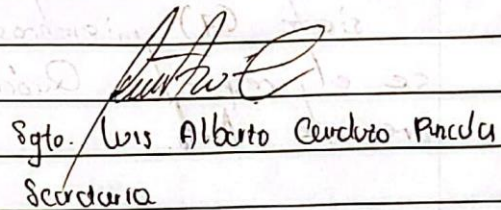 Sgto. Luis Alberto Cardozo Pineda
Secretaria